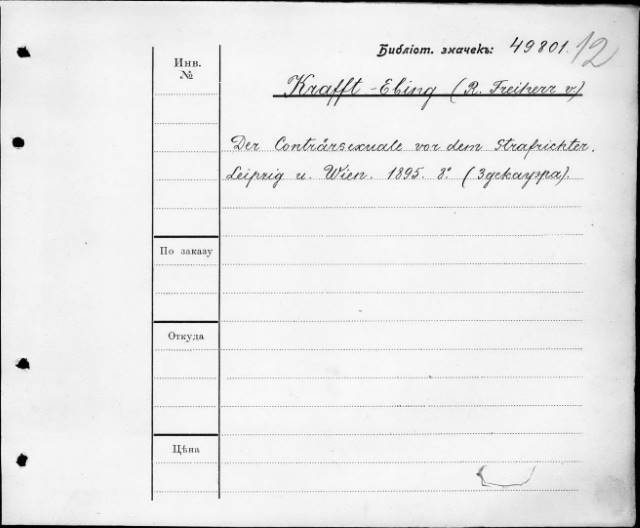 Библіот. значекъ: 49801. 12
Инв.
№
Krafft-Ebing (R. Freiherr v.)
Der Conträrsexuale vor dem Strafrichter.
Leipzig u. Wien. 1895. 8° (
По заказу
Откуда
Цѣна